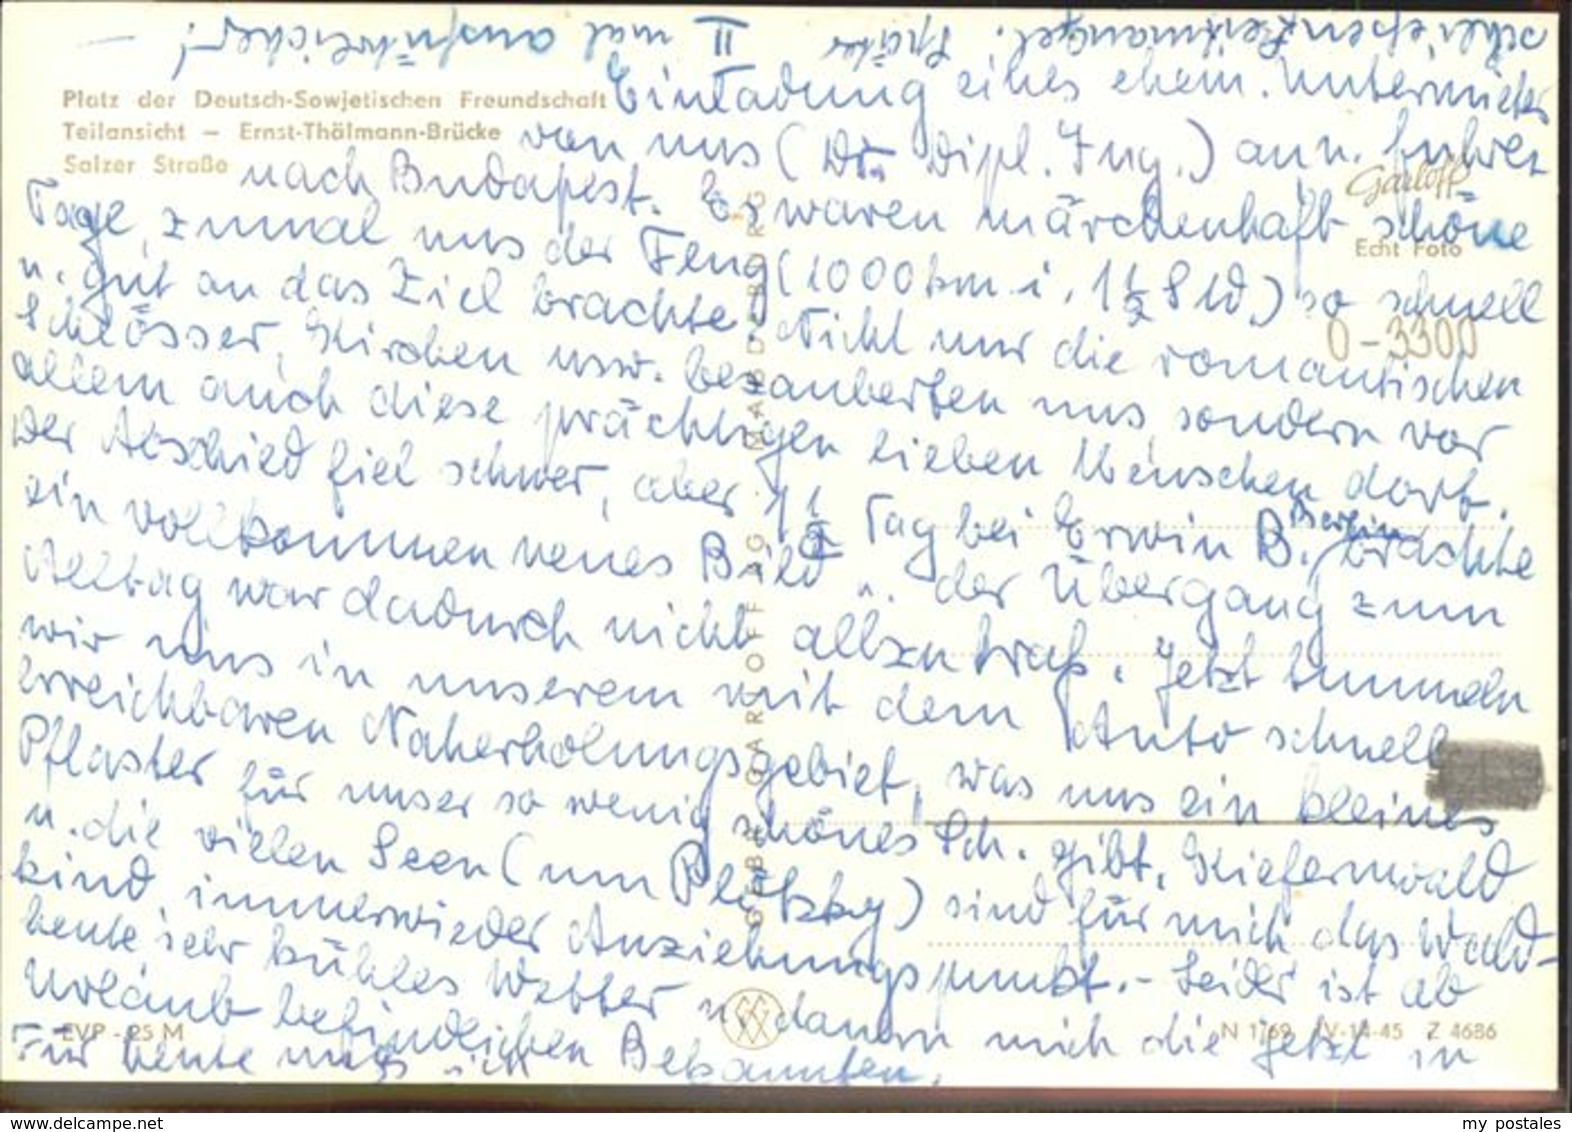 Platz der Deutsch-Sowjetischen Freundschaft
Teilansicht – Ernst-Thälmann-Brücke
Salzer Straße
Garloff
Echt Foto
0-3300
GEBR. GARLOFF KG · MAGDEBURG
EVP -25 M
N 1/69 IV-14-45 Z 4686
Einladung eines ehem. Untermieters
von uns (Dr. Dipl. Ing.) an u. fuhren
nach Budapest. Es waren märchenhaft schöne
Tage, zumal uns der Flug (1000 km i. 1½ Std.) so schnell
u. gut an das Ziel brachte. Nicht nur die romantischen
Schlösser, Kirchen usw. bezauberten uns sondern vor
allem auch diese prächtigen lieben Menschen dort.
Der Abschied fiel schwer, aber 1½ Tag bei Erwin B. Berlin brachte
ein vollkommen neues Bild u. der Übergang zum
Alltag war dadurch nicht allzu kraß. Jetzt tummeln
wir uns in unserem mit dem Auto schnell
erreichbaren Naherholungsgebiet, was uns ein kleines
Pflaster für unser so wenig schönes Sch. gibt. Kiefernwald
u. die vielen Seen (um Plötzky) sind für mich das Wald-
kind immerwieder Anziehungspunkt. - Leider ist ab
heute sehr kühles Wetter u. dauern mich die jetzt in
Urlaub befindlichen Bekannten.
Für heute muß ich
schließen, Zeitmangel. Später II mal ausführlicher! –
my-delcampe.net my_postales